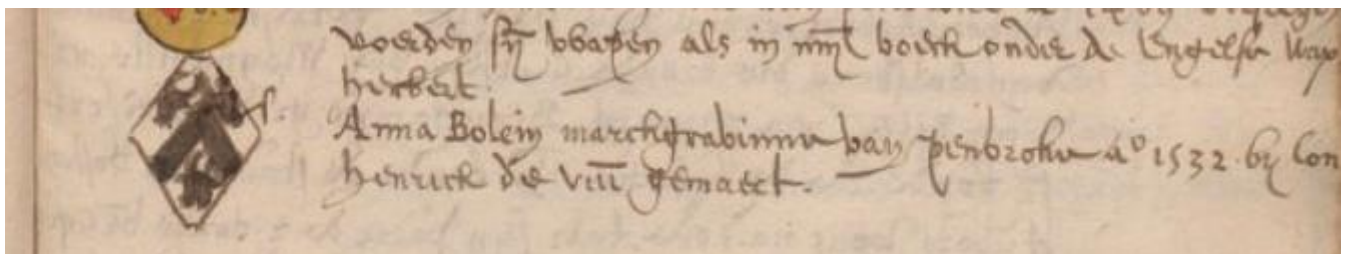 voerden sijn wapen als in mijn boeck onder de Engelse wap
herbert.
Anna Bolein marckgrabinne van penbroke aº 1532 bij Con
henrick die VIII gemaect.